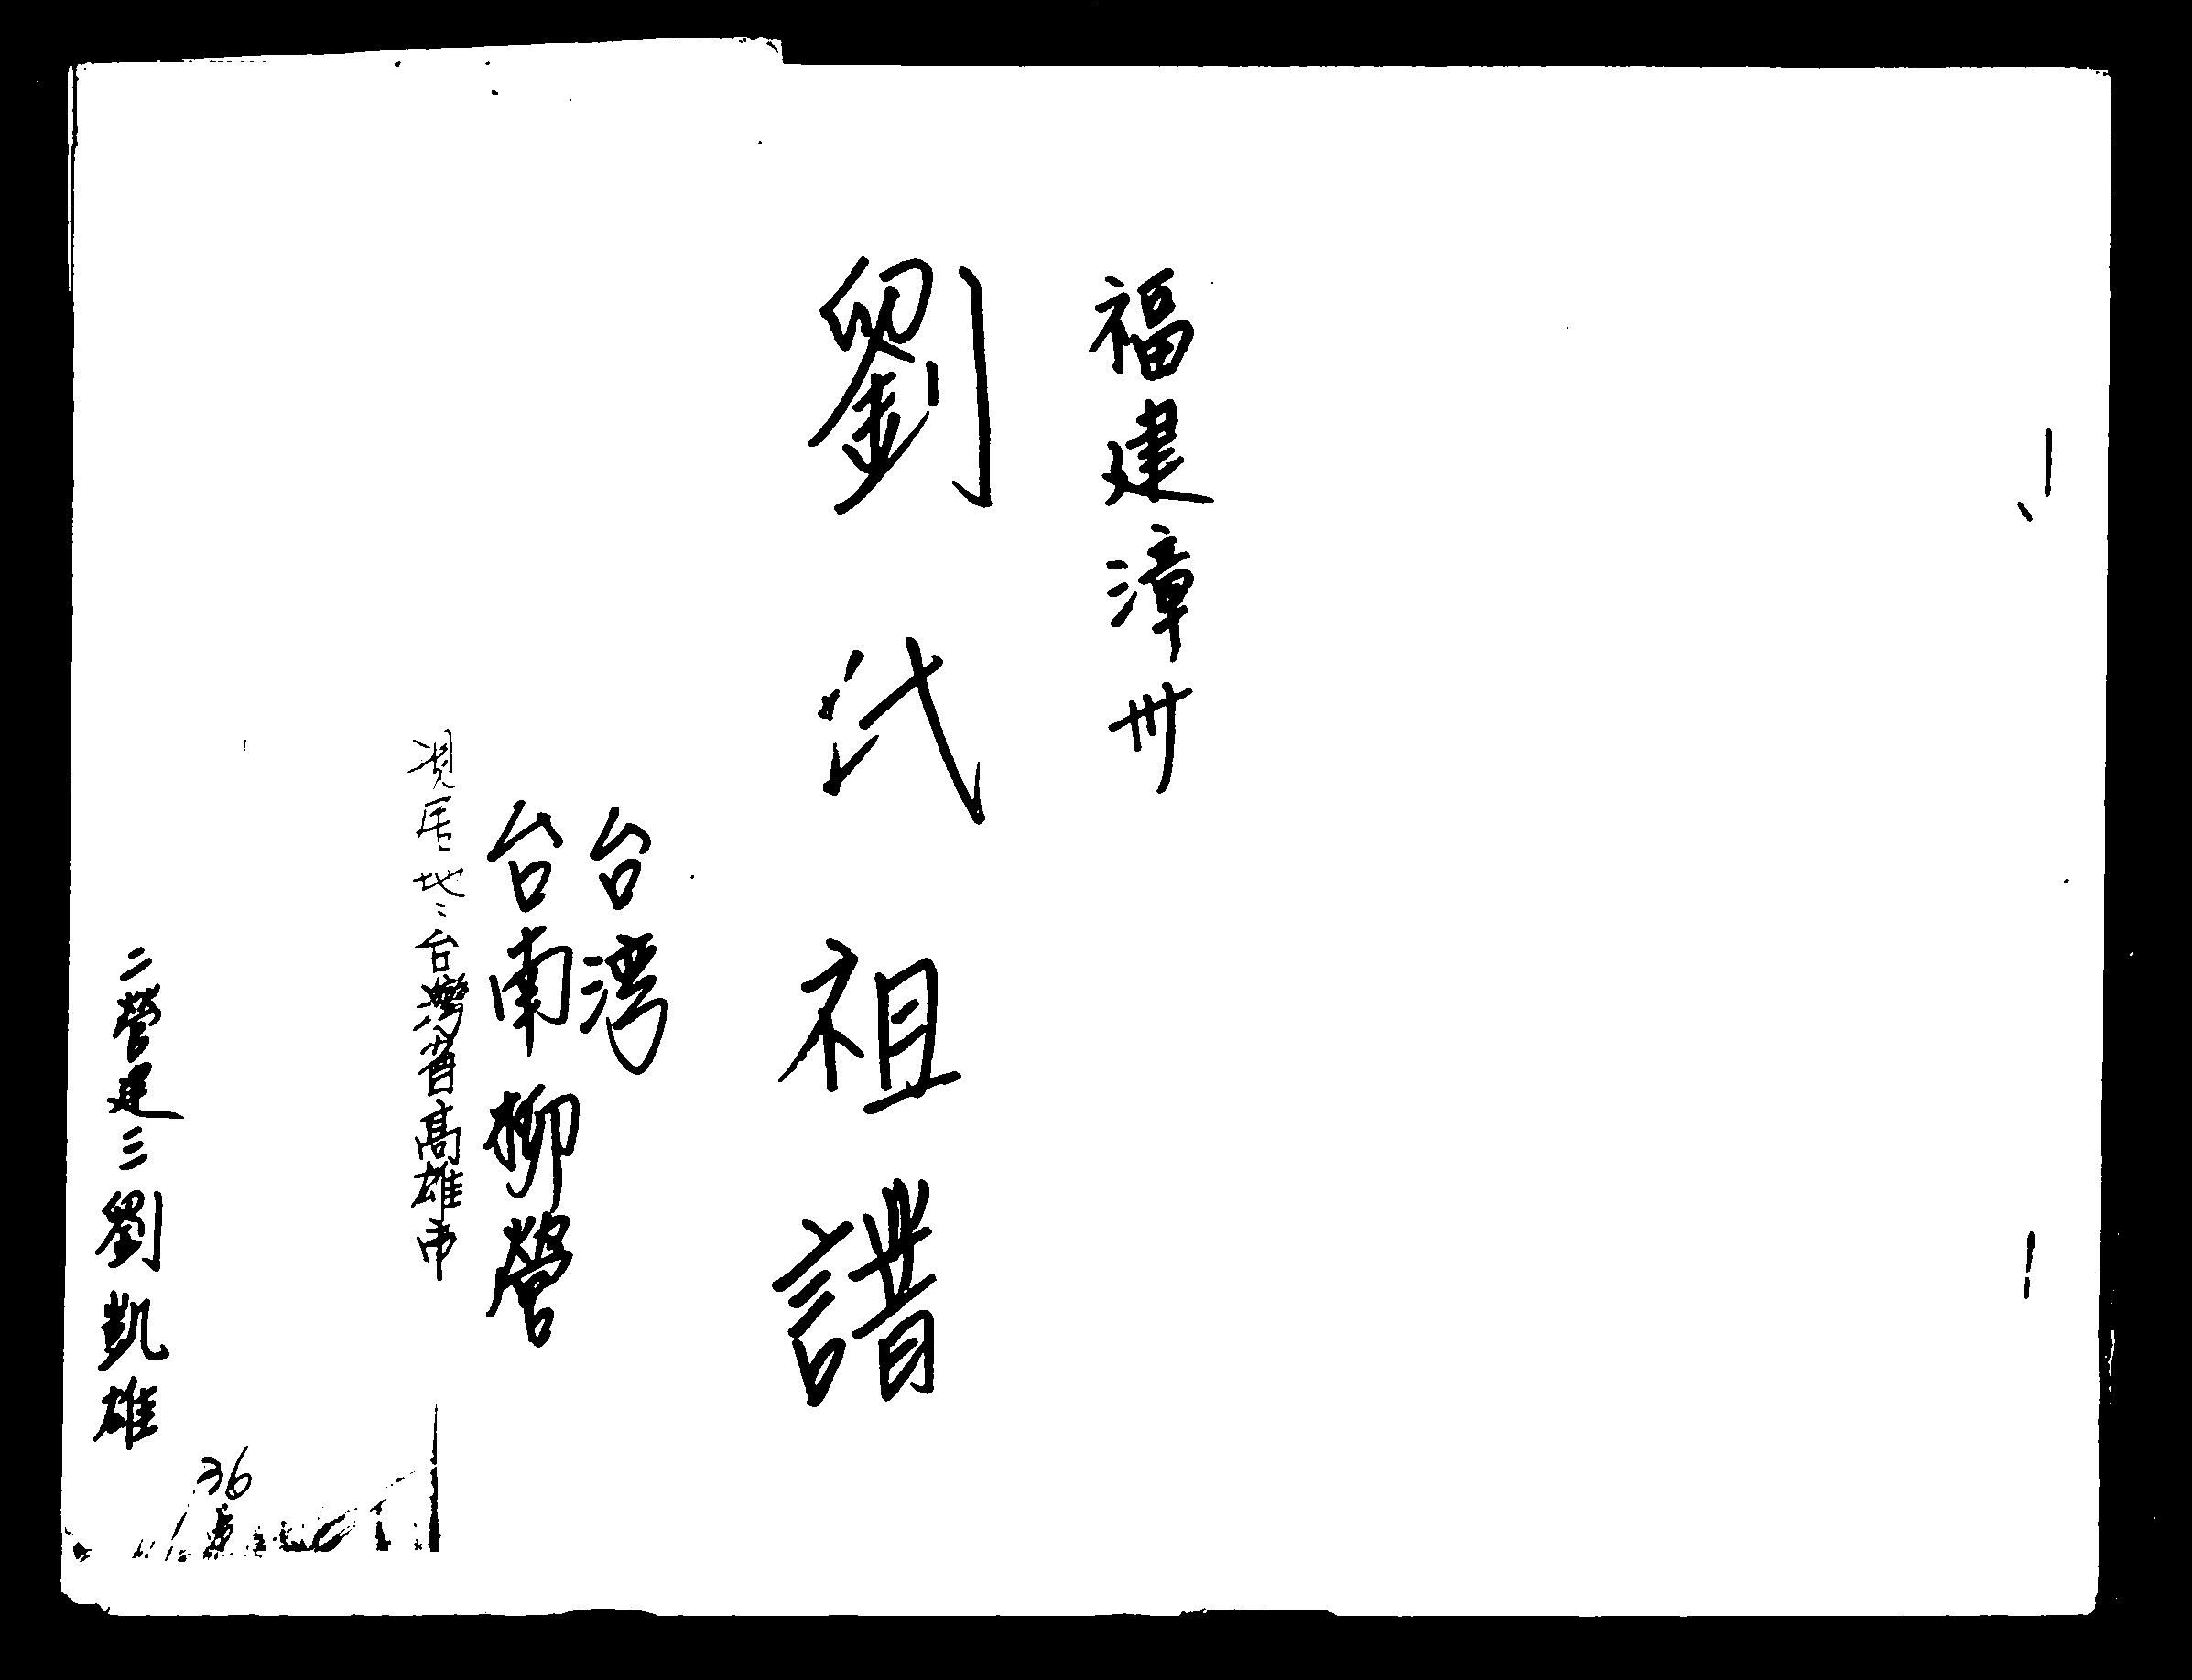 福建漳州
劉氏祖譜
台湾
台南柳營
現居地：台灣省高雄市
二營建三劉凱雄
36